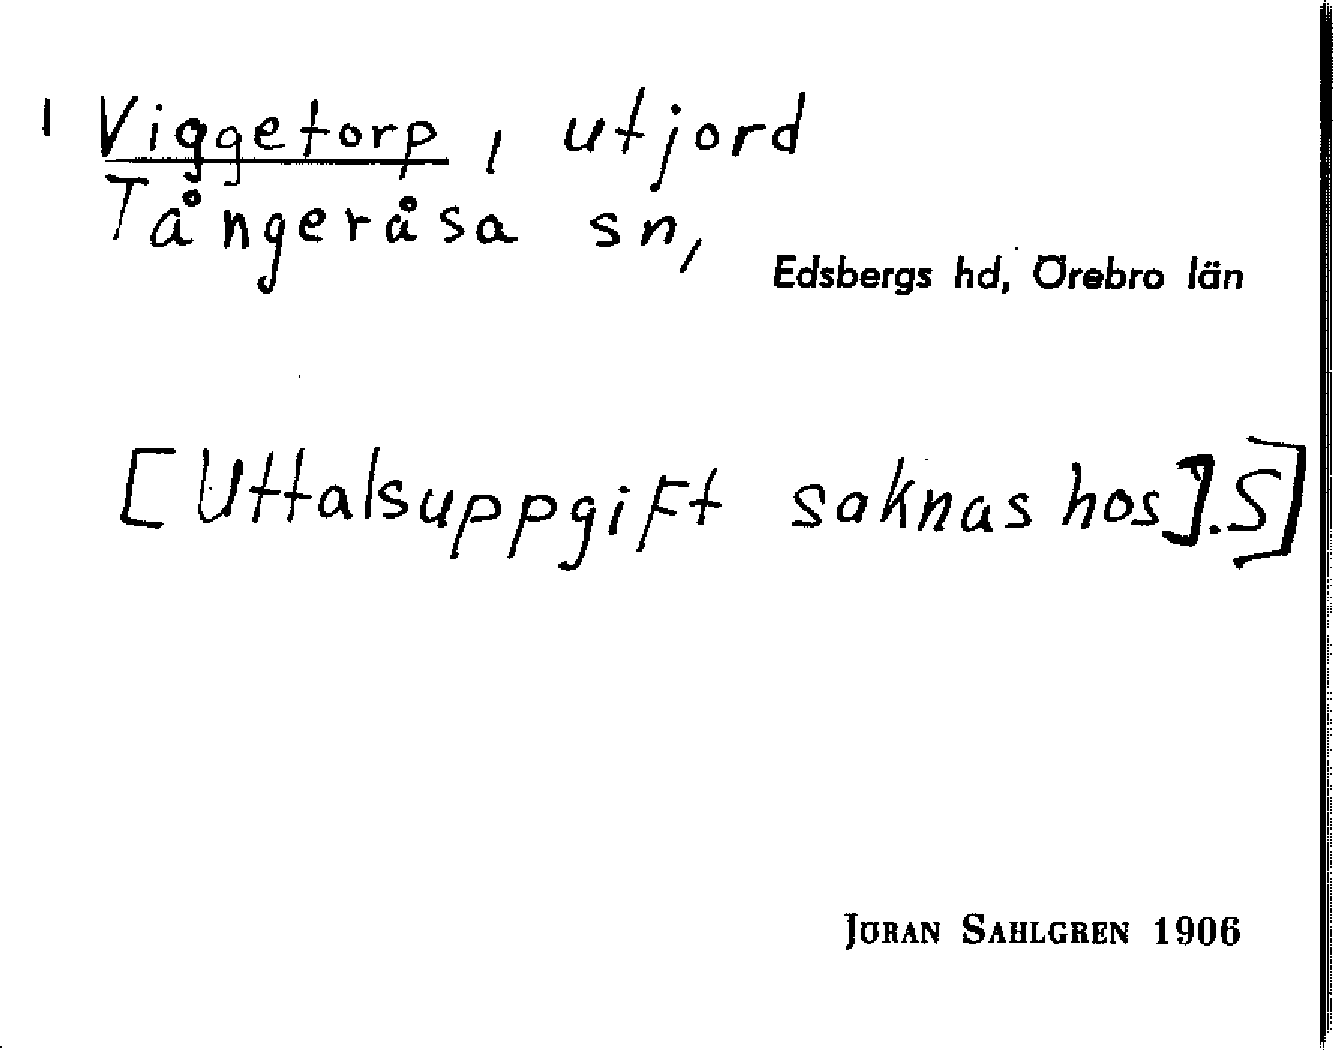 1 Viggetorp, utjord
Tångeråsa sn,
Edsbergs hd, Örebro län
[Uttalsuppgift saknas hos J.S]
JÖRAN SAHLGREN 1906